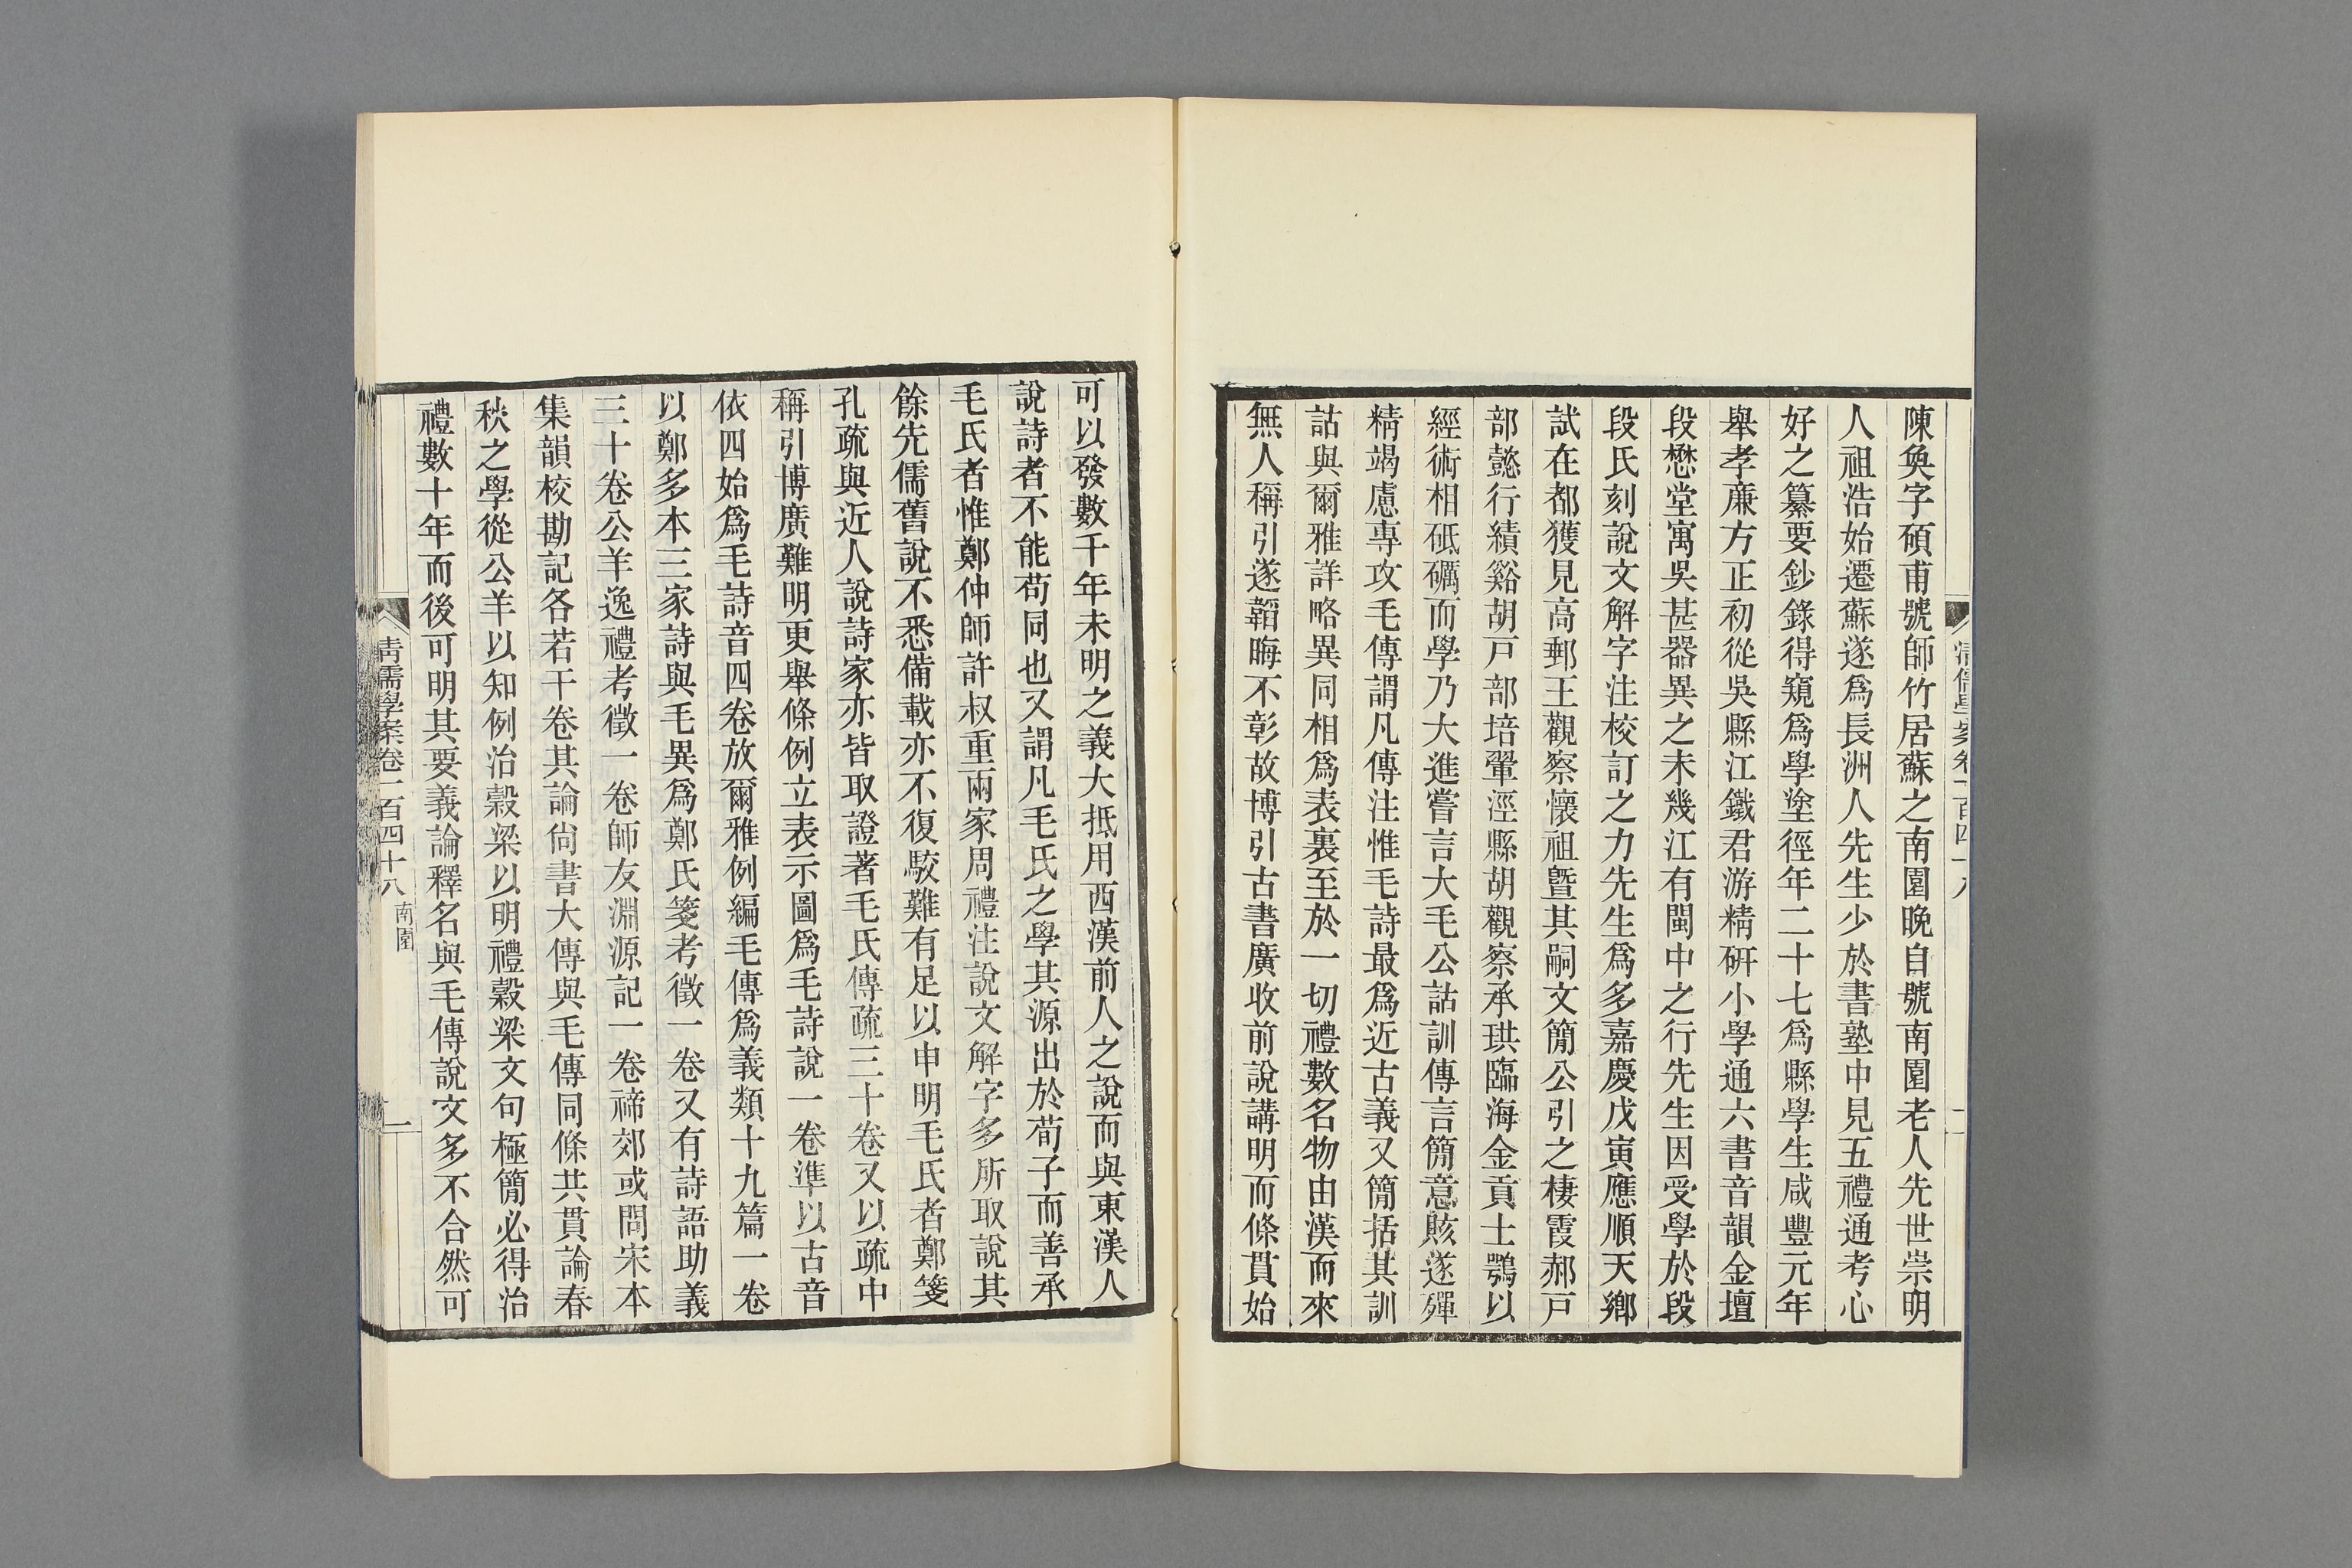 陳奐字碩甫號師竹居蘇之南園晚自號南園老人先世崇明
人祖浩始遷蘇遂爲長洲人先生少於書塾中見五禮通考心
好之纂要鈔錄得窺爲學塗徑年二十七爲縣學生咸豐元年
舉孝廉方正初從吳縣江鐵君游精研小學通六書音韻金壇
段懋堂寓吳甚器異之未幾江有閩中之行先生因受學於段
段氏刻說文解字注校訂之力先生爲多嘉慶戊寅應順天鄉
試在都獲見高郵王觀察懷祖曁其嗣文簡公引之棲霞郝戸
部懿行績谿胡戸部培翬涇縣胡觀察承珙臨海金貢士鶚以
經術相砥礪而學乃大進嘗言大毛公詁訓傳言簡意賅遂殫
精竭慮專攻毛傳謂凡傳注惟毛詩最爲近古義又簡括其訓
詁與爾雅詳略異同相爲表裏至於一切禮數名物由漢而來
無人稱引遂韜晦不彰故博引古書廣收前說講明而條貫始
可以發數千年未明之義大抵用西漢前人之說而與東漢人
說詩者不能苟同也又謂凡毛氏之學其源出於荀子而善承
毛氏者惟鄭仲師許叔重兩家周禮注說文解字多所取說其
餘先儒舊說不悉備載亦不復駮難有足以申明毛氏者鄭箋
孔疏與近人說詩家亦皆取證著毛氏傳疏三十卷又以疏中
稱引博廣難明更舉條例立表示圖爲毛詩說一卷準以古音
依四始爲毛詩音四卷放爾雅例編毛傳爲義類十九篇一卷
以鄭多本三家詩與毛異爲鄭氏箋考徵一卷又有詩語助義
三十卷公羊逸禮考徵一卷師友淵源記一卷禘郊或問宋本
集韻校勘記各若干卷其論尙書大傳與毛傳同條共貫論春
秋之學從公羊以知例治穀梁以明禮穀梁文句極簡必得治
禮數十年而後可明其要義論釋名與毛傳說文多不合然可
清儒學案卷一百四十八 南園 一